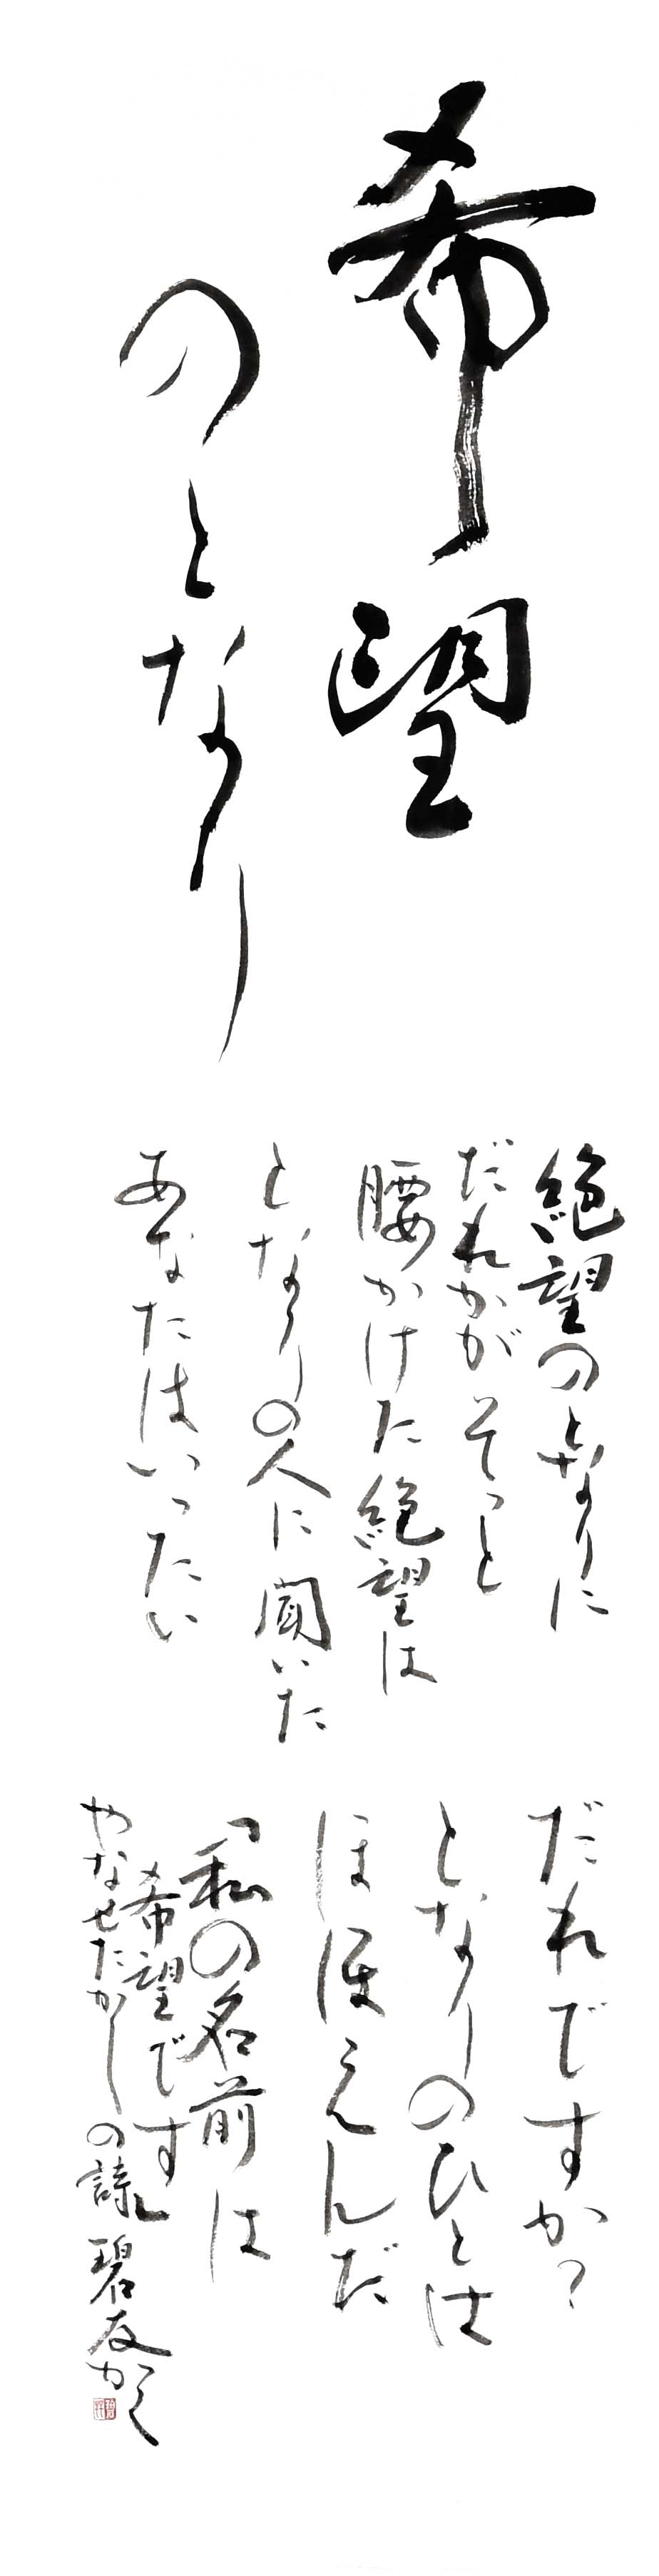 希望
のとなり
絶望のとなりに
だれかがそっと
腰かけた絶望は
となりの人に聞いた
あなたはいったい
だれですか？
となりのひとは
ほほえんだ
「私の名前は
希望です」
やなせたかしの詩 碧友かく